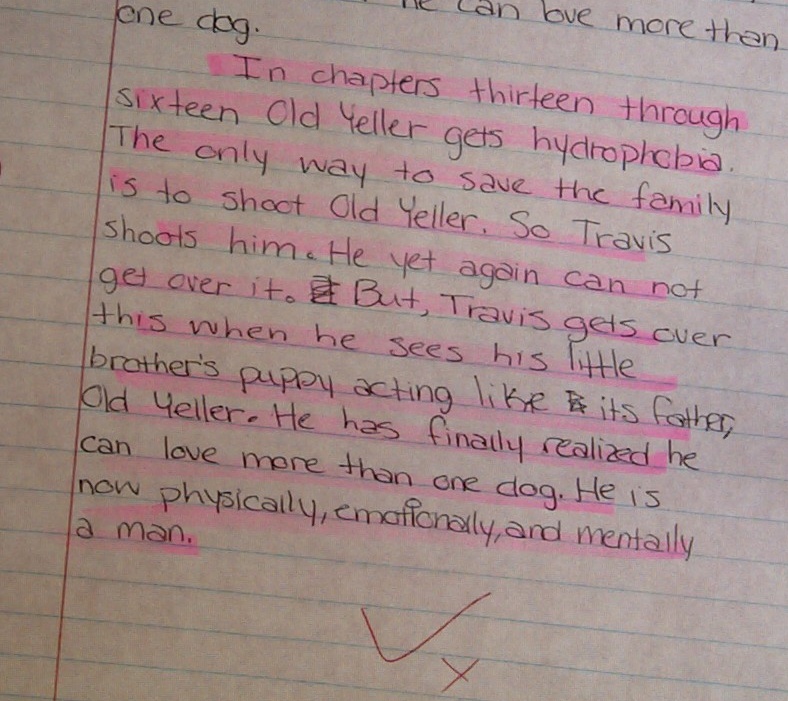 he can love more than
one dog.
In chapters thirteen through
sixteen Old Yeller gets hydrophobia.
The only way to save the family
is to shoot Old Yeller. So Travis
shoots him. He yet again can not
get over it. But, Travis gets over
this when he sees his little
brother's puppy acting like its father,
Old Yeller. He has finally realized he
can love more than one dog. He is
now physically, emotionally, and mentally
a man.